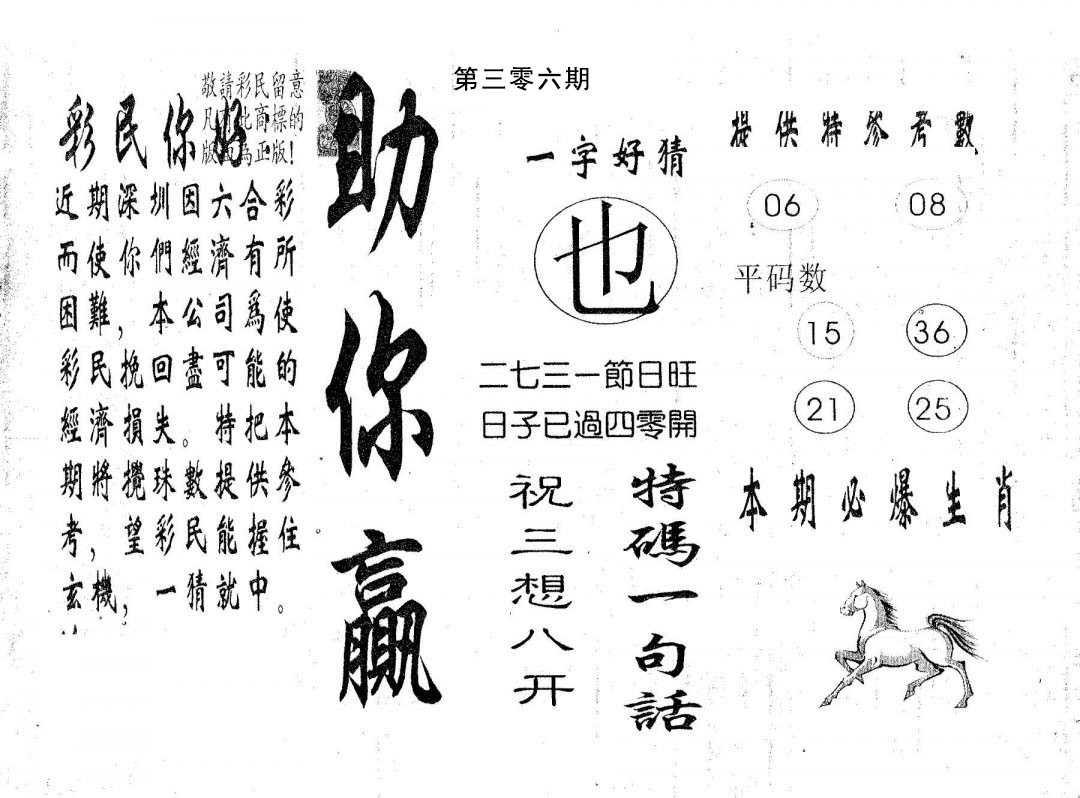 第三零六期
敬請彩民留意
凡 此商標的
版 為正版!
彩民你好
近期深圳因六合彩
而使你們經濟有所
困難,本公司為使
彩民挽回盡可能的
經濟損失。特把本
期將攪珠數提供參
考,望彩民能握住
玄機,一猜就中。
助你贏
一字好猜
也
二七三一節日旺
日子已過四零開
特碼一句話
祝三想八开
提供特参考數
06 08
平码数
15 36
21 25
本期必爆生肖